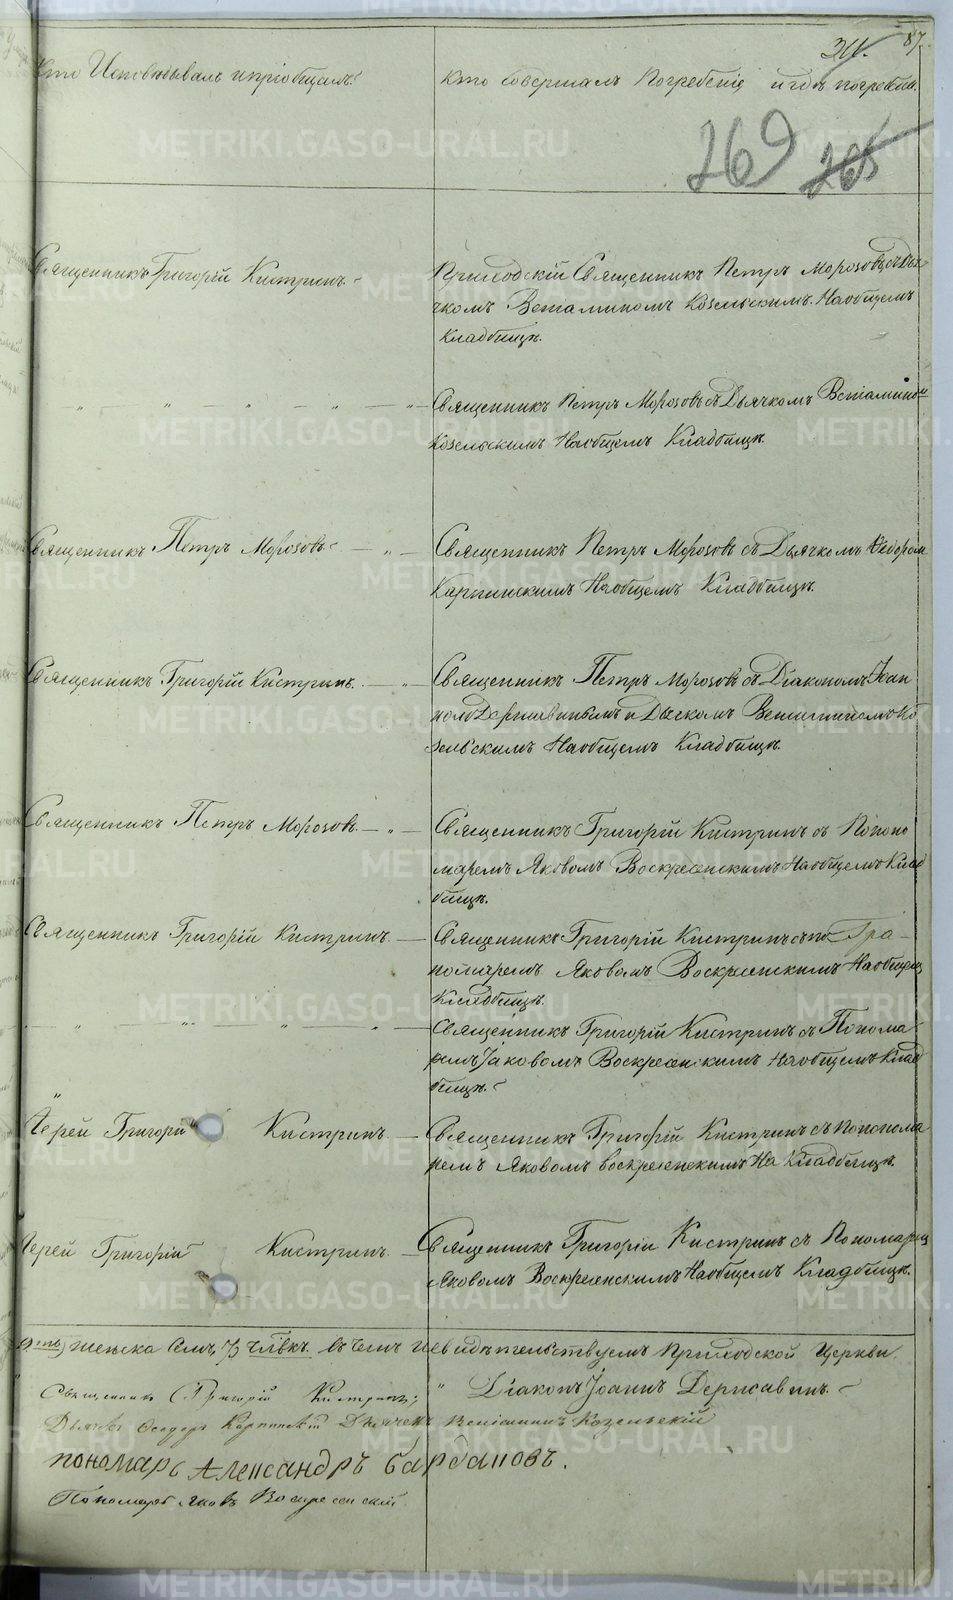 87.
311.
Кто Исповѣдывалъ и пріобщалъ.
Кто Совершалъ Погребеніе и гдѣ погребены.
269 265
Священникъ Григорій Кистринъ.
Приходскій Священникъ Петръ Морозовъ съ Дья-
чкомъ Веніаминомъ Козельскимъ. На общемъ
Кладбищѣ.
Священникъ Петръ Морозовъ съ Дьячкомъ Веніамино
Козельскимъ На общемъ Кладбищѣ.
Священникъ Петръ Морозовъ
Священникъ Петръ Морозовъ съ Дьячкомъ Ѳедоромъ
Карпинскимъ На общемъ Кладбищѣ.
Священникъ Григорій Кистринъ.
Священникъ Петръ Морозовъ съ Діакономъ Іоан
номъ Державинымъ и Дьячкомъ Веніаминомъ Ко
зельскимъ На общемъ Кладбищѣ.
Священникъ Петръ Морозовъ.
Священникъ Григорій Кистринъ съ Поно
маремъ Яковомъ Воскресенскимъ На общемъ Клад
бищѣ.
Священникъ Григорій Кистринъ.
Священникъ Григорій Кистринъ съ по
номаремъ Яковомъ Воскресенскимъ На общемъ
Кладбищѣ.
Священникъ Григорій Кистринъ съ Понома
ремъ Іаковомъ Воскресенскимъ На общемъ Клад
бищѣ.
Іерей Григорій Кистринъ
Священникъ Григорій Кистринъ съ Понома
ремъ Яковомъ Воскресенскимъ На Кладбищѣ.
Іерей Григорій Кистринъ
Священникъ Григорій Кистринъ съ Пономаремъ
Яковомъ Воскресенскимъ На общемъ Кладбищѣ.
женска Семь, 73 члвкъ. въ чемъ и свидѣтельствуемъ Приходской Церкви.
Священникъ Григорій Кистринъ; Діаконъ Іоаннъ Державинъ.
Дьячекъ Ѳеодоръ Карпинскій Дьячекъ Веніаминъ Козельскій
пономарь Александръ Бардановъ.
Пономарь Яковъ Воскресенскій.
METRIKI.GASO-URAL.RU